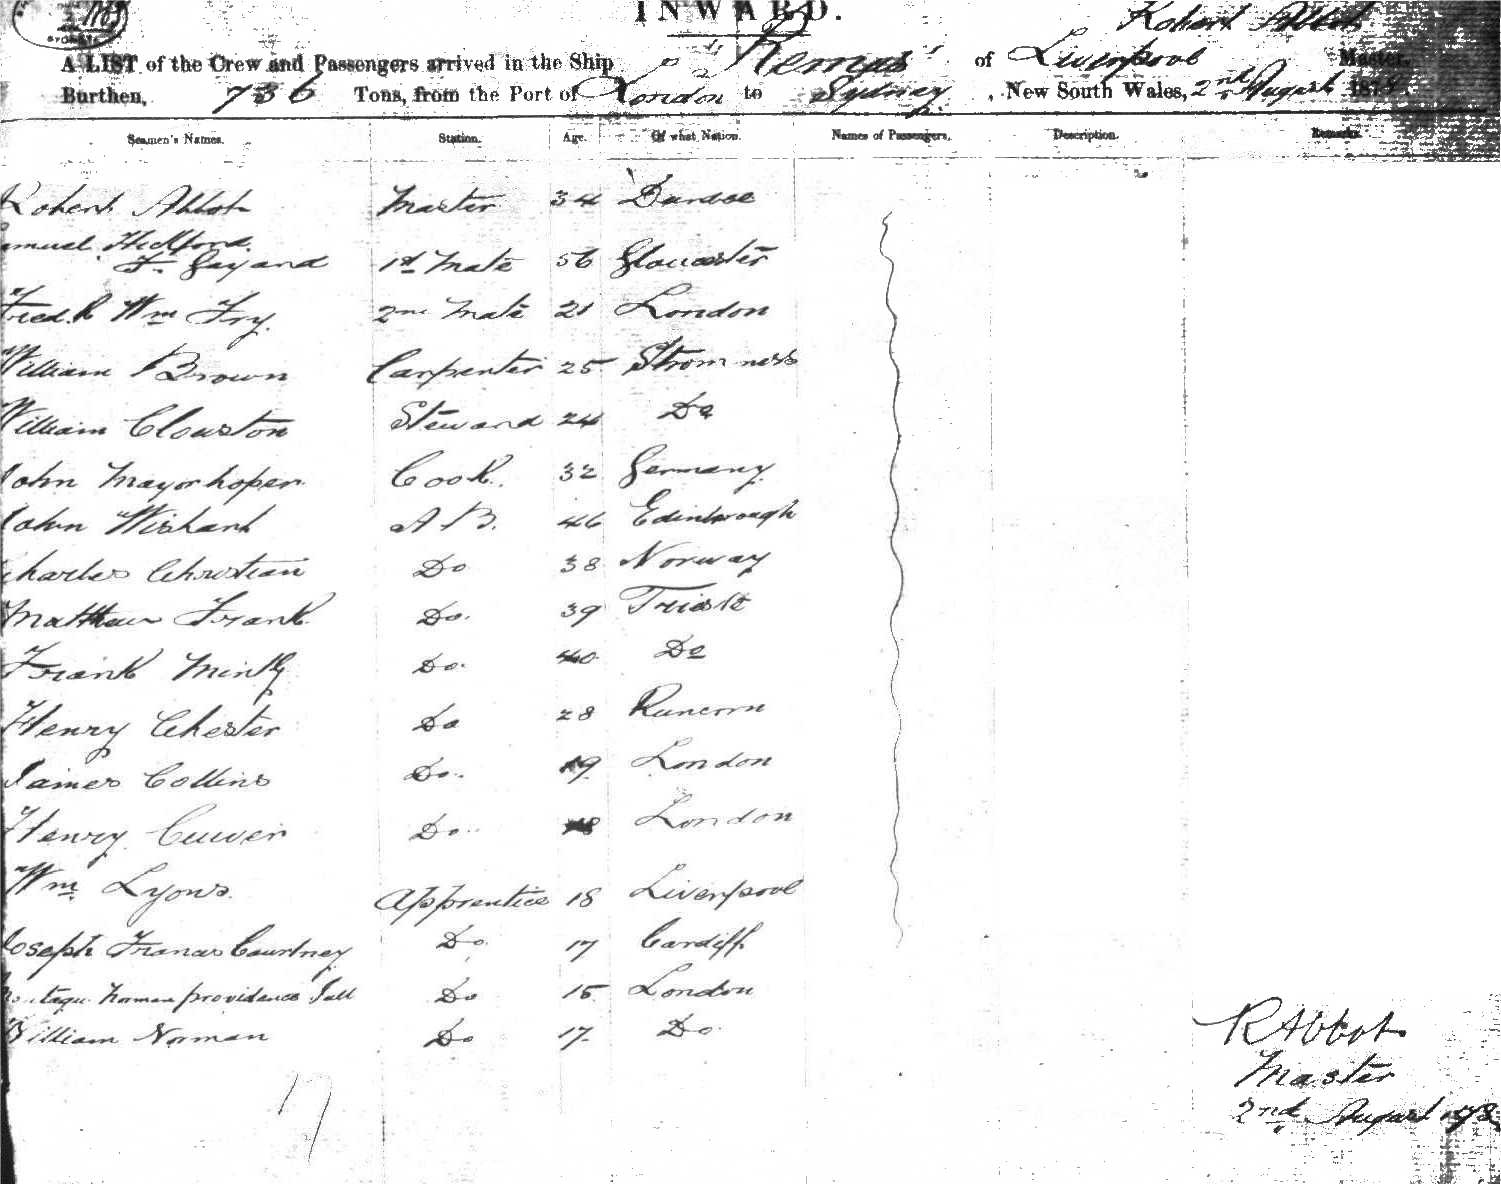 INWARD.
A LIST of the Crew and Passengers arrived in the Ship "Remus" of Liverpool Robert Abbot Master,
Burthen, 736 Tons, from the Port of London to Sydney, New South Wales, 2nd August 1878.
Seamen's Names. Station. Age. Of what Nation. Names of Passengers. Description. Remarks.
Robert Abbot Master 34 Dundee
Samuel Hickford
F. Gayand 1st Mate 56 Gloucester
Fredk Wm Fry. 2nd Mate 21 London
William Brown Carpenter 25 Stromness
William Clouston Steward 24 Do
John Mayorhoper Cook. 32 Germany
John Wishart A.B. 46 Edinborough
Charles Christian Do 38 Norway
Matthew Frank Do. 39 Trieste
Frank Do. 40 Do
Henry Chester Do 28 Runcorn
James Collins Do. 19 London
Henry Cuwer Do. 18 London
Wm Lyons. Apprentice 18 Liverpool
Joseph Francis Courtney Do 17 Cardiff
Montagu Norman providence Do 15 London
William Norman Do 17 Do
17
R Abbot
Master
2nd August 1878